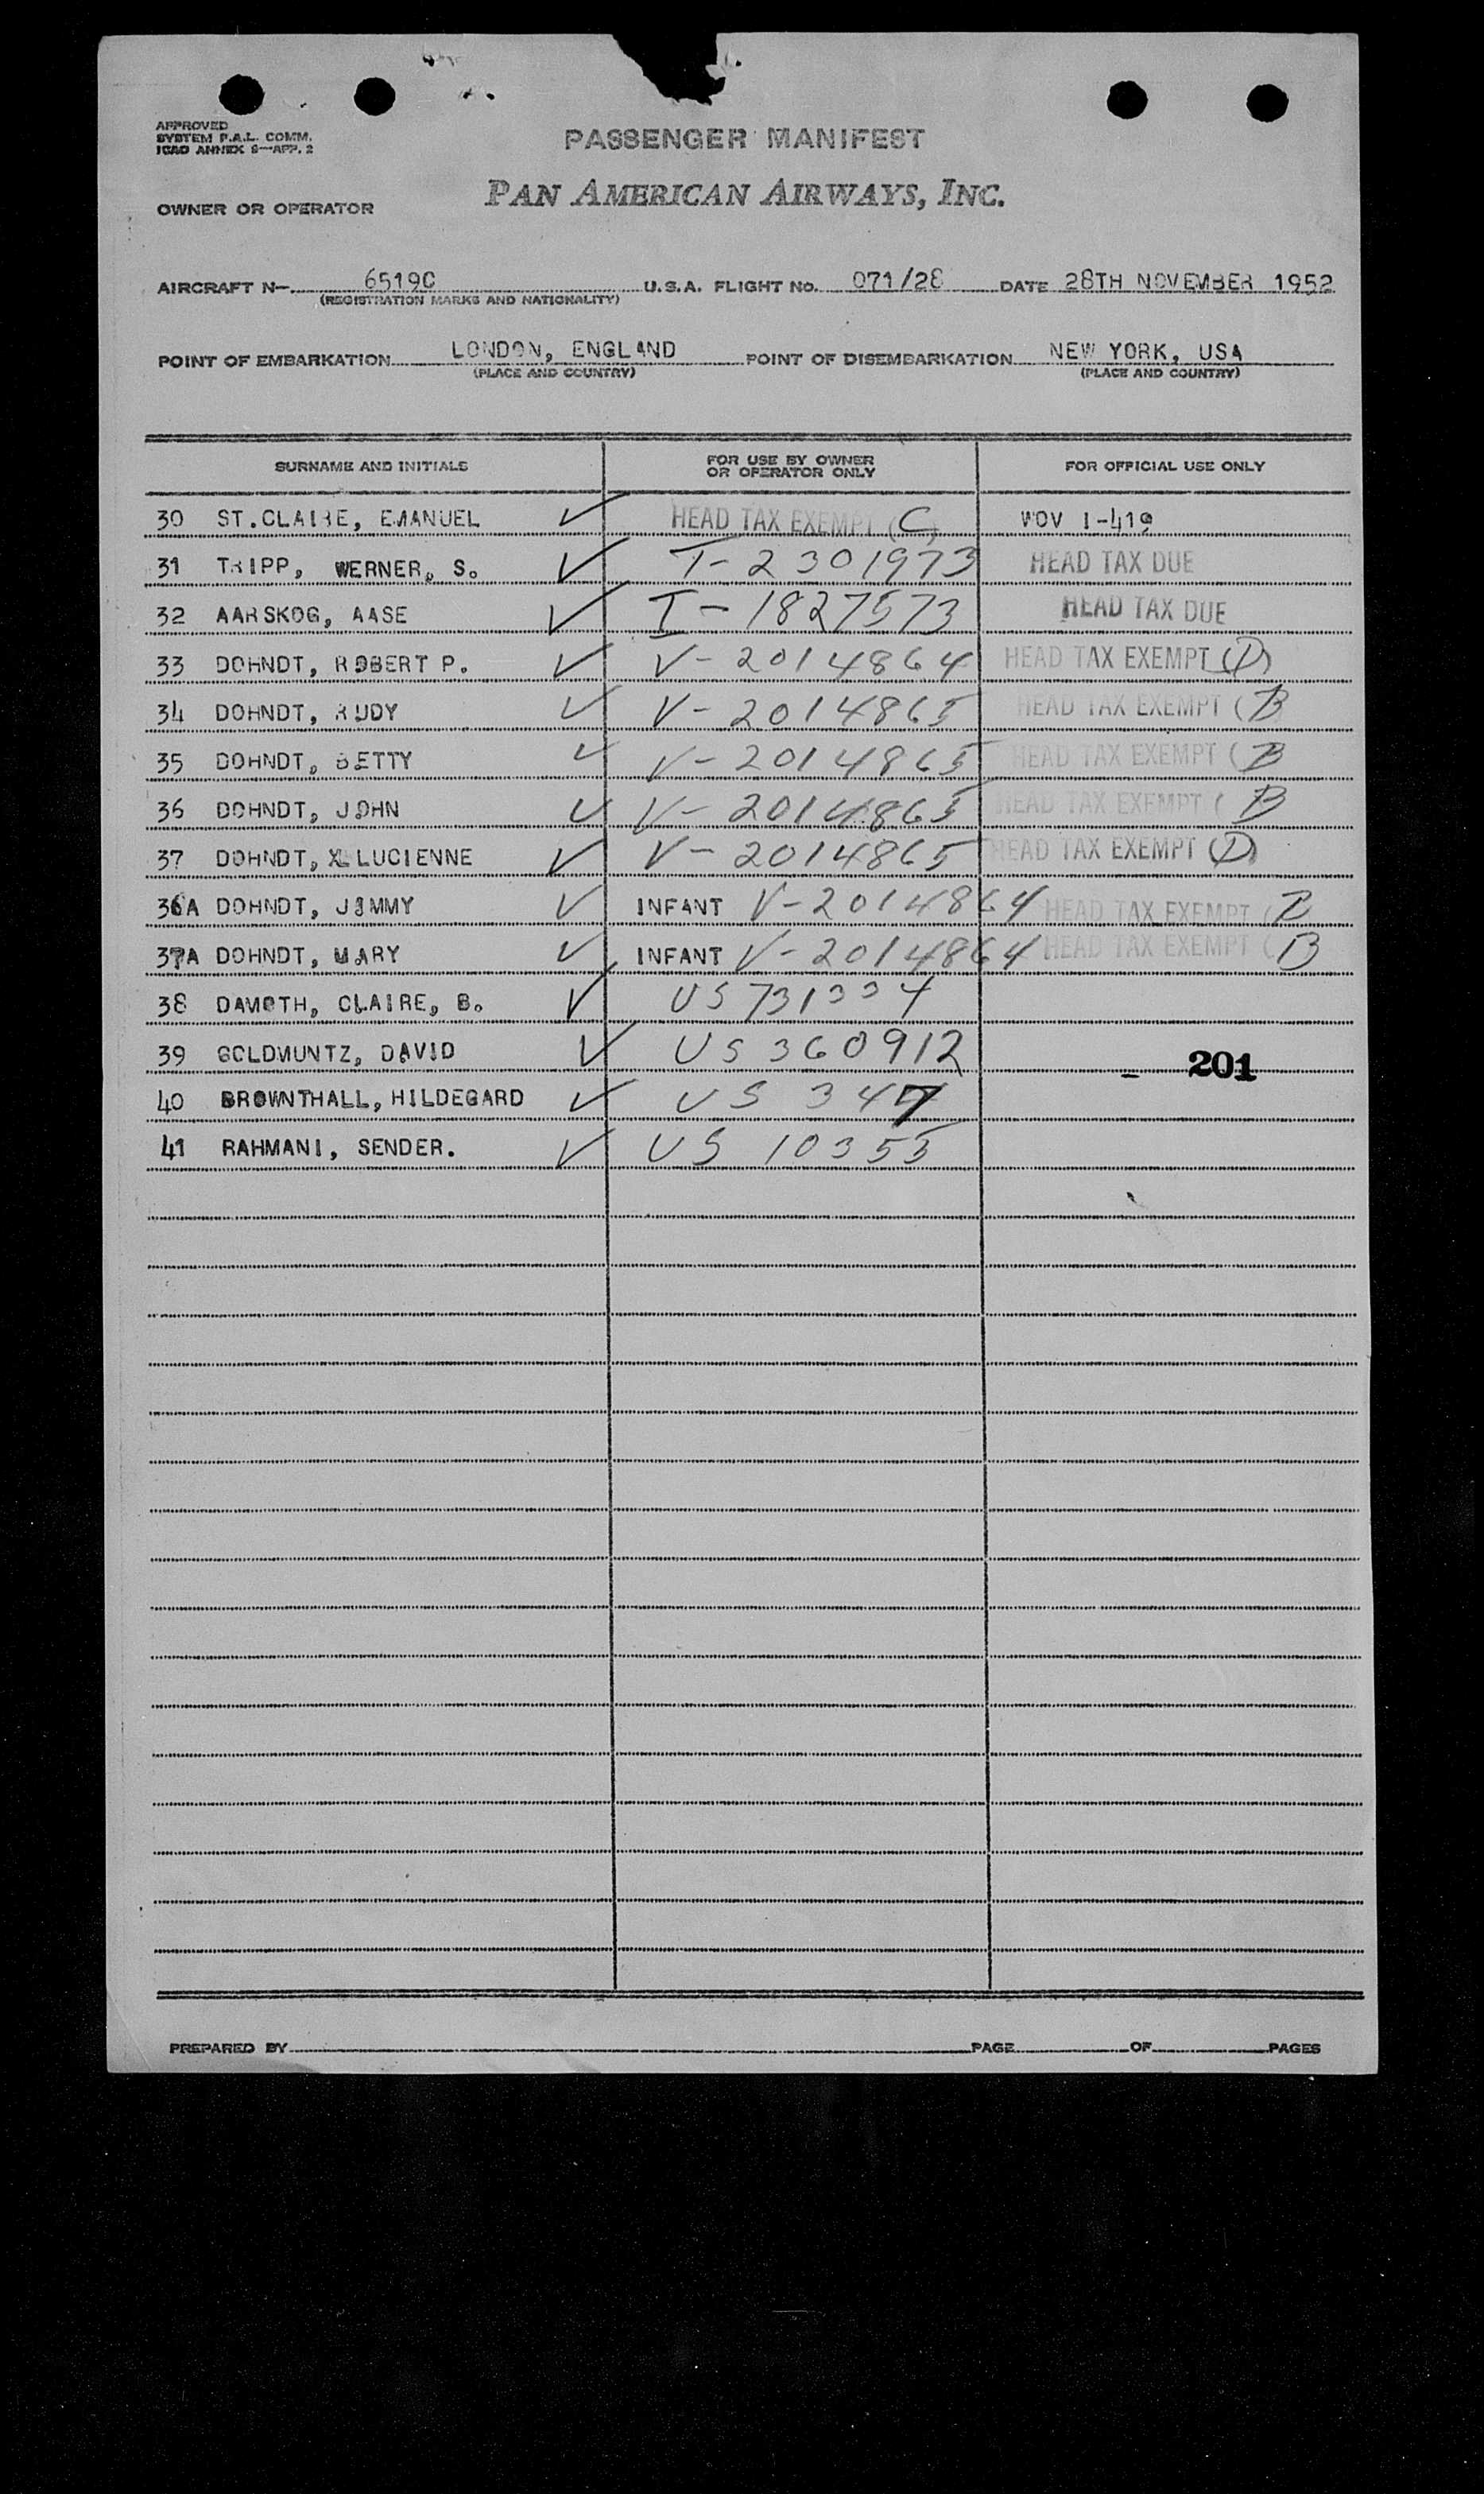 APPROVED
SYSTEM P.A.L. COMM.
ICAO ANNEX 9—APP. 2
PASSENGER MANIFEST
OWNER OR OPERATOR PAN AMERICAN AIRWAYS, INC.
AIRCRAFT N— 6519C U.S.A. FLIGHT NO. 071/28 DATE 28TH NOVEMBER 1952
(REGISTRATION MARKS AND NATIONALITY)
POINT OF EMBARKATION LONDON, ENGLAND POINT OF DISEMBARKATION NEW YORK, USA
(PLACE AND COUNTRY) (PLACE AND COUNTRY)
SURNAME AND INITIALS FOR USE BY OWNER OR OPERATOR ONLY FOR OFFICIAL USE ONLY
30 ST.CLAIRE, EMANUEL ✓ HEAD TAX EXEMPT (C) WOV I-419
31 TRIPP, WERNER, S. ✓ T-2301973 HEAD TAX DUE
32 AARSKOG, AASE ✓ I-1827573 HEAD TAX DUE
33 DOHNDT, ROBERT P. ✓ V-2014864 HEAD TAX EXEMPT (D)
34 DOHNDT, RUDY ✓ V-2014865 HEAD TAX EXEMPT (B
35 DOHNDT, BETTY ✓ V-2014865 HEAD TAX EXEMPT (B
36 DOHNDT, JOHN ✓ V-2014865 HEAD TAX EXEMPT (B
37 DOHNDT, LUCIENNE ✓ V-2014865 HEAD TAX EXEMPT (D)
36A DOHNDT, JIMMY ✓ INFANT V-2014864 HEAD TAX EXEMPT (B
37A DOHNDT, MARY ✓ INFANT V-2014864 HEAD TAX EXEMPT (B
38 DAMOTH, CLAIRE, B. ✓ US 731334
39 GOLDMUNTZ, DAVID ✓ US 360912
201
40 BROWNTHALL, HILDEGARD ✓ US 347
41 RAHMANI, SENDER. ✓ US 10355
PREPARED BY PAGE OF PAGES